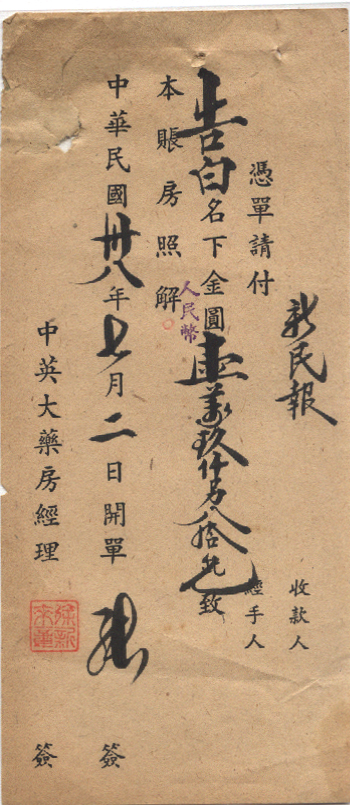 新民報
收款人
經手人
憑單請付
告白名下金圓壹萬玖仟另八拾元致
人民幣
本賬房照解
中華民國卅八年七月二日開單
簽
中英大藥房經理
簽